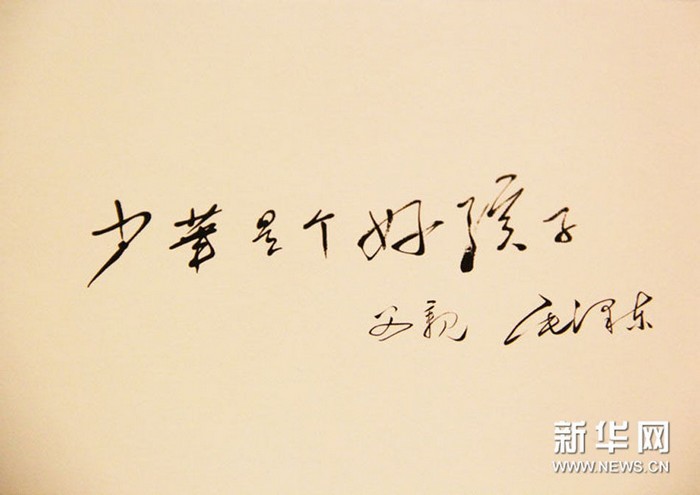 少华是个好孩子
父親 毛泽东
新华网
WWW.NEWS.CN